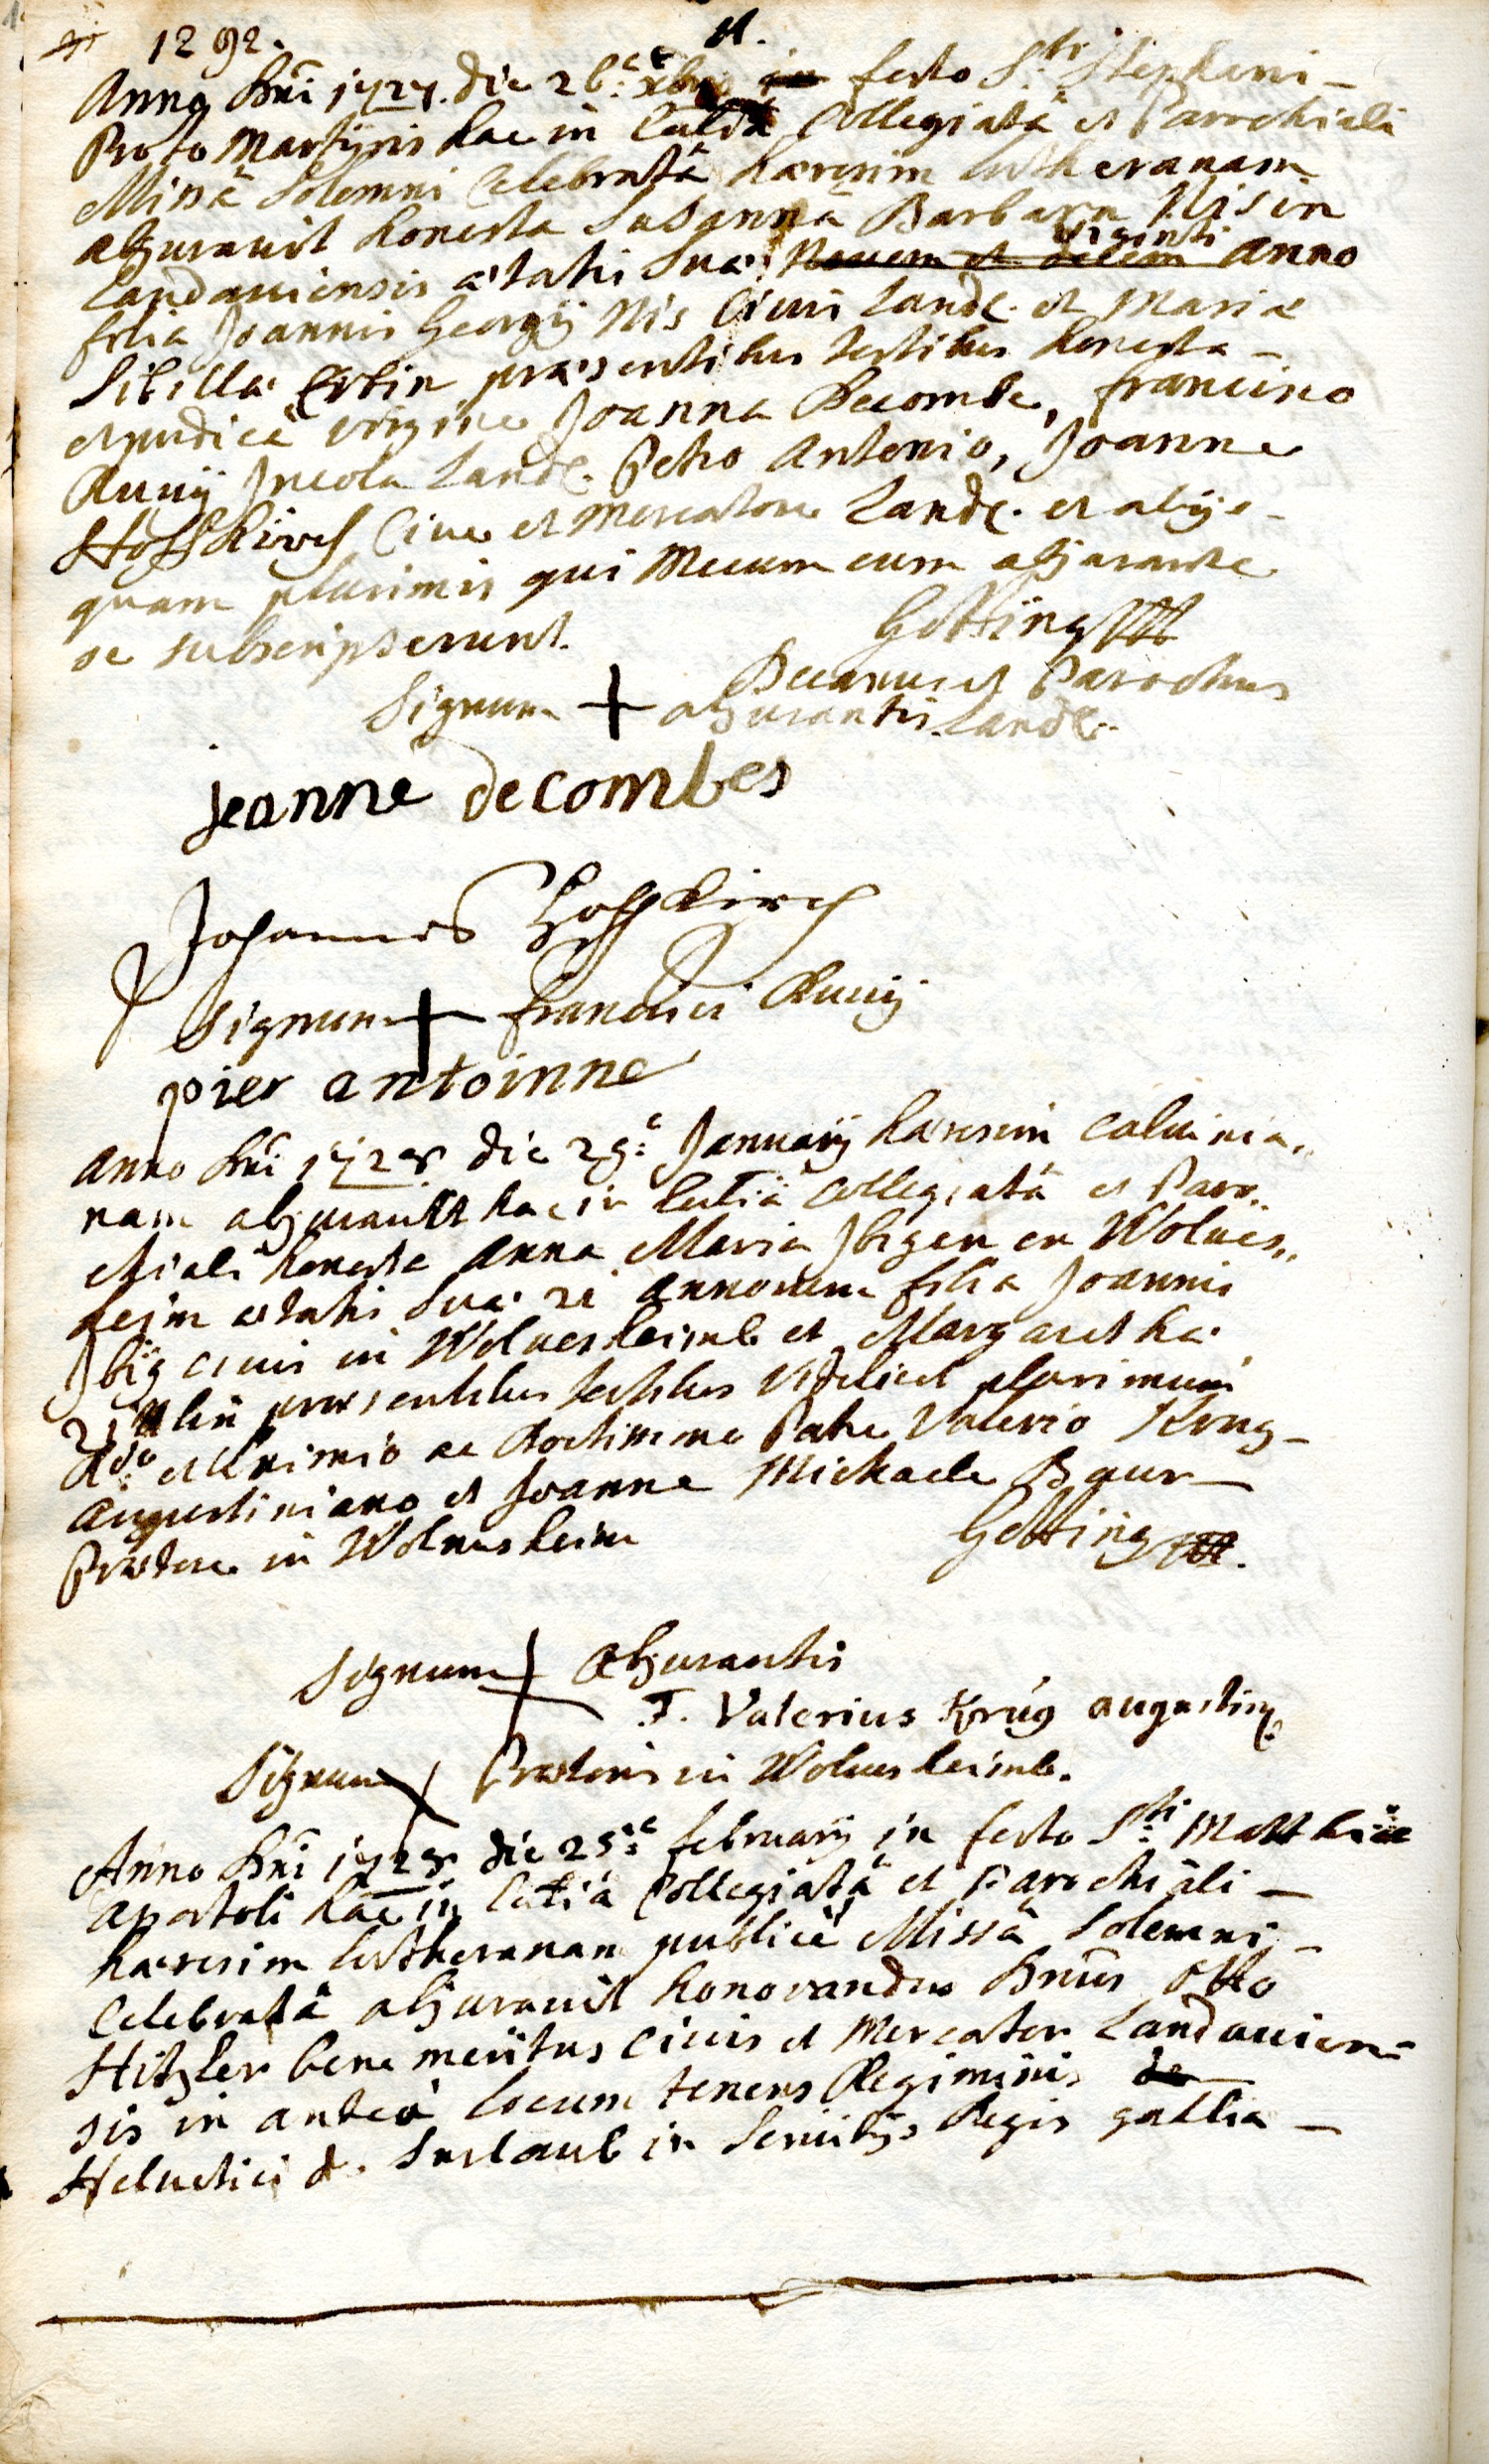 1292.
Anno Dni 1727. die 26.e xbris in festo S.ti Stephani -
Proto Martyris hac in Eccl̃ia Collegiatâ et Parochiali
Missâ Solemni Celebratâ hæresim lutheranam
abjuravit honesta Susanna Barbara Nisin
Landaviensis ætatis Suæ Novem et decem viginti anno
filia Joannis Georgij Nis Civis Land. et Mariæ
Sibillæ Erbin præsentibus testibus honesta -
et pudicâ virgine Joanna Decombe, francisco
Incola Land. Petro Antonio, Joanne
Hoffkirch Cive et Mercatore Land. et alijs -
quam plurimis qui Mecum cum abjurante
se subscripserunt.
Götting
Decanus et Parochus
Signum + abjurantis. Land.
jeanne decombes
Johannes Hoffkirch
Signum + francisci
pier antoinne
Anno Dni 1728 die 29.e Januarij hæresim calvinia„
nam abjuravit hac in Eccl̃iâ Collegiatâ et Paro„
chiali honesta Anna Maria Ibigen en Wolmes„
heim ætatis Suæ 21 annorum filia Joannis
Ibig civis in Wolmesheimb et Margarethæ
præsentibus testibus videlicet plurimum
Rdo et Eximio ac doctissimo Patre Valerio Krug -
Augustiniano et Joanne Michaele Baur -
Prætore in Wolmesheim
Götting
Signum + Abjurantis
F. Valerius Krúg augustin.
Signum + Prætoris in Wolmesheimb.
Anno Dni 1728 die 25.e february in festo S.ti Matthiæ
Apostoli hac in Eccl̃iâ Collegiatâ et Parochiali -
hæresim lutheranam publicè Missâ Solemni -
Celebratâ abjuravit honorandus Dnus Otto
Hitzler bene meritus civis et Mercator Landavien=
sis in anteà locum tenens Regiminis de
Helvetici d. Surlaub in Servitijs Regis galliæ -